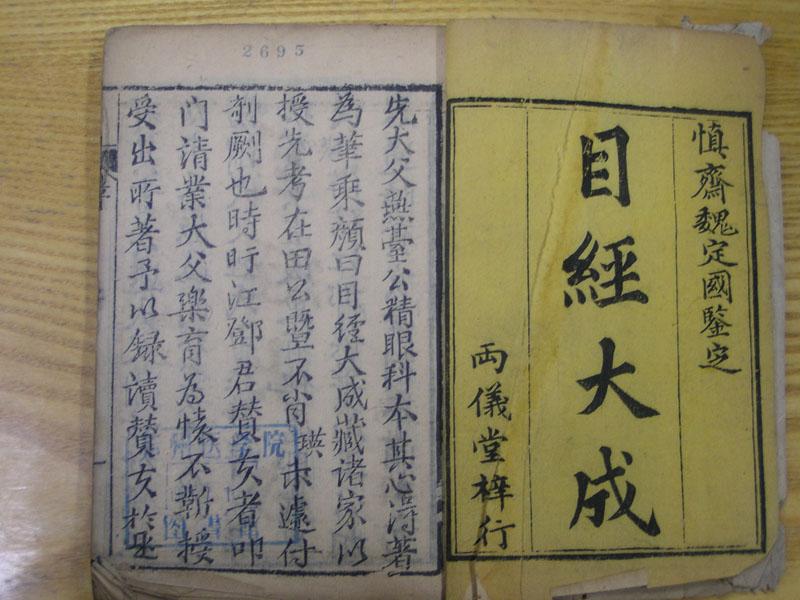 慎齋魏定國鑒定
目經大成
両儀堂梓行
2695
先大父燕臺公精眼科本其心淂著
為華乘顏曰目经大成藏诸家以
授先考在田公曁不肖瑛未遽付
剞劂也時盱江鄧君賛夫者叩
门请業大父樂育為懐不靳授
受出所著予以録讀賛夫於是